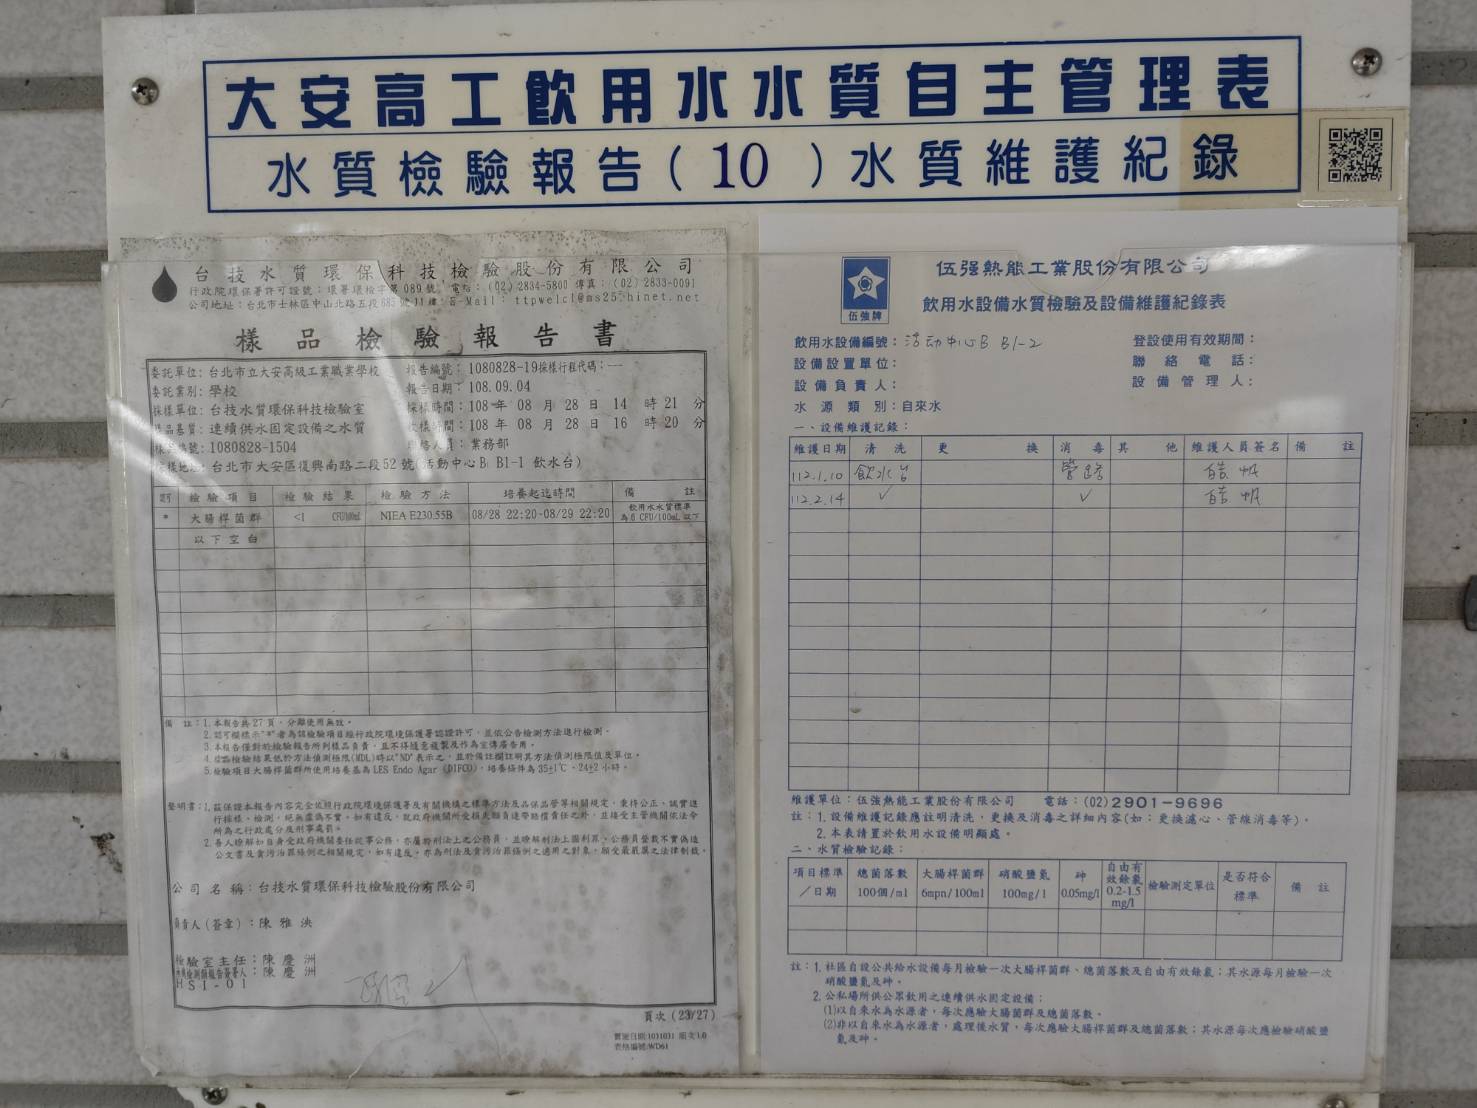 大安高工飲用水水質自主管理表
水質檢驗報告(10)水質維護紀錄
台技水質環保科技檢驗股份有限公司
行政院環保署許可證號：環署環檢字第089號 電話：(02) 2834-5800 傳真：(02) 2833-0091
公司地址：台北市士林區中山北路五段685號11樓 E-Mail：ttpwelcl@ms25.hinet.net
樣品檢驗報告書
委託單位：台北市立大安高級工業職業學校 報告編號：1080828-19採樣行程代碼：---
委託業別：學校 報告日期：108.09.04
採樣單位：台技水質環保科技檢驗室 採樣時間：108 年 08 月 28 日 14 時 21 分
樣品基質：連續供水固定設備之水質 收樣時間：108 年 08 月 28 日 16 時 20 分
樣品編號：1080828-1504 聯絡人員：業務部
採樣地址：台北市大安區復興南路二段52號(活動中心B B1-1 飲水台)
檢驗項目 檢驗結果 檢驗方法 培養起迄時間 備註
* 大腸桿菌群 <1 CFU/100mL NIEA E230.55B 08/28 22:20-08/29 22:20 飲用水水質標準為6 CFU/100mL 以下
以下空白
備註：1.本報告共27頁，分離使用無效。
2.認可欄標示"*"者為該檢驗項目經行政院環境保護署認證許可，並依公告檢測方法進行檢測。
3.本報告僅對於檢驗報告所列樣品負責，且不得隨意複製及作為宣傳廣告用。
4.樣品檢驗結果低於方法偵測極限(MDL)時以"ND"表示之，並於備註欄註明其方法偵測極限值及單位。
5.檢驗項目大腸桿菌群所使用培養基為LES Endo Agar (DIFCO)，培養條件為35±1℃，24±2小時。
聲明書：1.茲保證本報告內容完全依照行政院環境保護署及有關機構之標準方法及品保品管等相關規定，秉持公正、誠實進
行採樣、檢測，絕無虛偽不實，如有違反，就政府機關所受損失願負連帶賠償責任之外，並接受主管機關依法令
所為之行政處分及刑事處罰。
2.吾人瞭解如自身受政府機關委任從事公務，亦屬於刑法上之公務員，並瞭解刑法上圖利罪、公務員登載不實偽造
公文書及貪污治罪條例之相關規定，如有違反，亦為刑法及貪污治罪條例之適用之對象，願受最嚴厲之法律制裁。
公司名稱：台技水質環保科技檢驗股份有限公司
負責人(簽章)：陳雅泱
檢驗室主任：陳慶洲
檢測類報告簽署人：陳慶洲
HSI-01
頁次 (23/27)
實施日期:1031031 版次1.0
表格編號:WD61
伍強牌
伍强熱能工業股份有限公司
飲用水設備水質檢驗及設備維護紀錄表
飲用水設備編號：活动中心B B1-2 登設使用有效期間：
設備設置單位： 聯絡電話：
設備負責人： 設備管理人：
水源類別：自來水
一、設備維護記錄：
維護日期 清洗 更換 消毒 其他 維護人員簽名 備註
112.1.10 飲水台 管路
112.2.14 ✓ ✓
維護單位：伍強熱能工業股份有限公司 電話：(02)2901-9696
註：1.設備維護記錄應註明清洗，更換及消毒之詳細內容(如：更換濾心、管線消毒等)。
2.本表請置於飲用水設備明顯處。
二、水質檢驗記錄：
項目標準／日期 總菌落數 100個/ml 大腸桿菌群 6mpn/100ml 硝酸鹽氮 100mg/l 砷 0.05mg/l 自由有效餘氯 0.2-1.5 mg/l 檢驗測定單位 是否符合標準 備註
註：1.社區自設公共給水設備每月檢驗一次大腸桿菌群、總菌落數及自由有效餘氯；其水源每月檢驗一次
硝酸鹽氮及砷。
2.公私場所供公眾飲用之連續供水固定設備：
(1)以自來水為水源者，每次應驗大腸菌群及總菌落數。
(2)非以自來水為水源者，處理後水質，每次應驗大腸桿菌群及總菌落數；其水源每次應檢驗硝酸鹽
氮及砷。